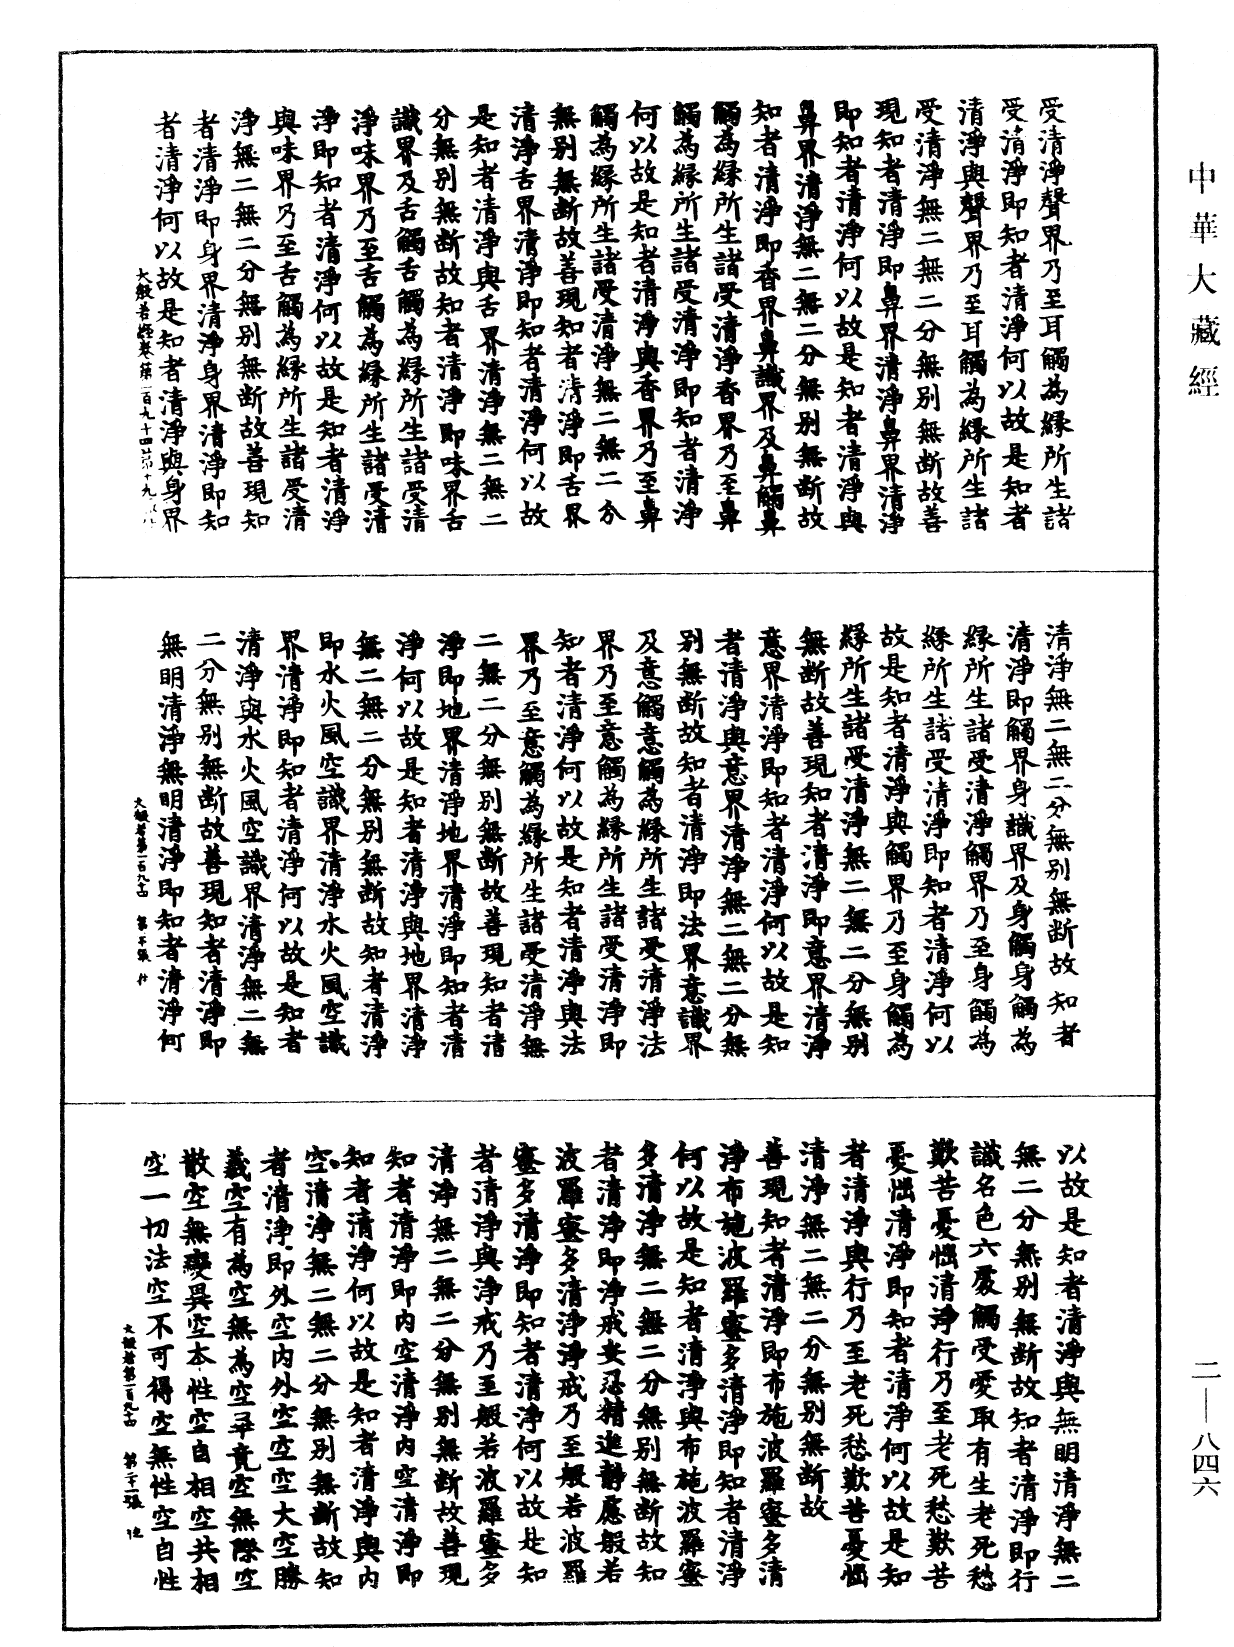 中華大藏經
受清淨聲界乃至耳觸為緣所生諸
受清淨即知者清淨何以故是知者
清淨與聲界乃至耳觸為緣所生諸
受清淨無二無二分無别無断故善
現知者清淨即鼻界清淨鼻界清淨
即知者清淨何以故是知者清淨與
鼻界清淨無二無二分無别無断故
知者清淨即香界鼻識界及鼻觸鼻
觸為緣所生諸受清淨香界乃至鼻
觸為緣所生諸受清淨即知者清淨
何以故是知者清淨與香界乃至鼻
觸為緣所生諸受清淨無二無二分
無别無断故善現知者清淨即舌界
清淨舌界清淨即知者清淨何以故
是知者清淨與舌界清淨無二無二
分無别無断故知者清淨即味界舌
識界及舌觸舌觸為緣所生諸受清
淨味界乃至舌觸為緣所生諸受清
淨即知者清淨何以故是知者清淨
與味界乃至舌觸為緣所生諸受清
淨無二無二分無别無断故善現知
者清淨即身界清淨身界清淨即知
者清淨何以故是知者清淨與身界
大般若經卷第一百九十四 第十九
清淨無二無二分無别無断故知者
清淨即觸界身識界及身觸身觸為
緣所生諸受清淨觸界乃至身觸為
緣所生諸受清淨即知者清淨何以
故是知者清淨與觸界乃至身觸為
緣所生諸受清淨無二無二分無别
無断故善現知者清淨即意界清淨
意界清淨即知者清淨何以故是知
者清淨與意界清淨無二無二分無
别無断故知者清淨即法界意識界
及意觸意觸為緣所生諸受清淨法
界乃至意觸為緣所生諸受清淨即
知者清淨何以故是知者清淨與法
界乃至意觸為緣所生諸受清淨無
二無二分無别無断故善現知者清
淨即地界清淨地界清淨即知者清
淨何以故是知者清淨與地界清淨
無二無二分無别無断故知者清淨
即水火風空識界清淨水火風空識
界清淨即知者清淨何以故是知者
清淨與水火風空識界清淨無二無
二分無别無断故善現知者清淨即
無明清淨無明清淨即知者清淨何
大般若第一百九十四 第二十張
以故是知者清淨與無明清淨無二
無二分無别無断故知者清淨即行
識名色六處觸受愛取有生老死愁
歎苦憂惱清淨行乃至老死愁歎苦
憂惱清淨即知者清淨何以故是知
者清淨與行乃至老死愁歎苦憂惱
清淨無二無二分無别無断故
善現知者清淨即布施波羅蜜多清
淨布施波羅蜜多清淨即知者清淨
何以故是知者清淨與布施波羅蜜
多清淨無二無二分無别無断故知
者清淨即淨戒安忍精進靜慮般若
波羅蜜多清淨淨戒乃至般若波羅
蜜多清淨即知者清淨何以故是知
者清淨與淨戒乃至般若波羅蜜多
清淨無二無二分無别無断故善現
知者清淨即內空清淨內空清淨即
知者清淨何以故是知者清淨與內
空清淨無二無二分無别無断故知
者清淨即外空內外空空空大空勝
義空有為空無為空畢竟空無際空
散空無變異空本性空自相空共相
空一切法空不可得空無性空自性
大般若第一百九十四 第二十一張
二—八四六